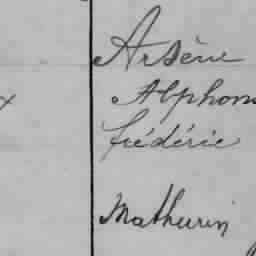 Arsène
Alphons
frédéric
Mathurin